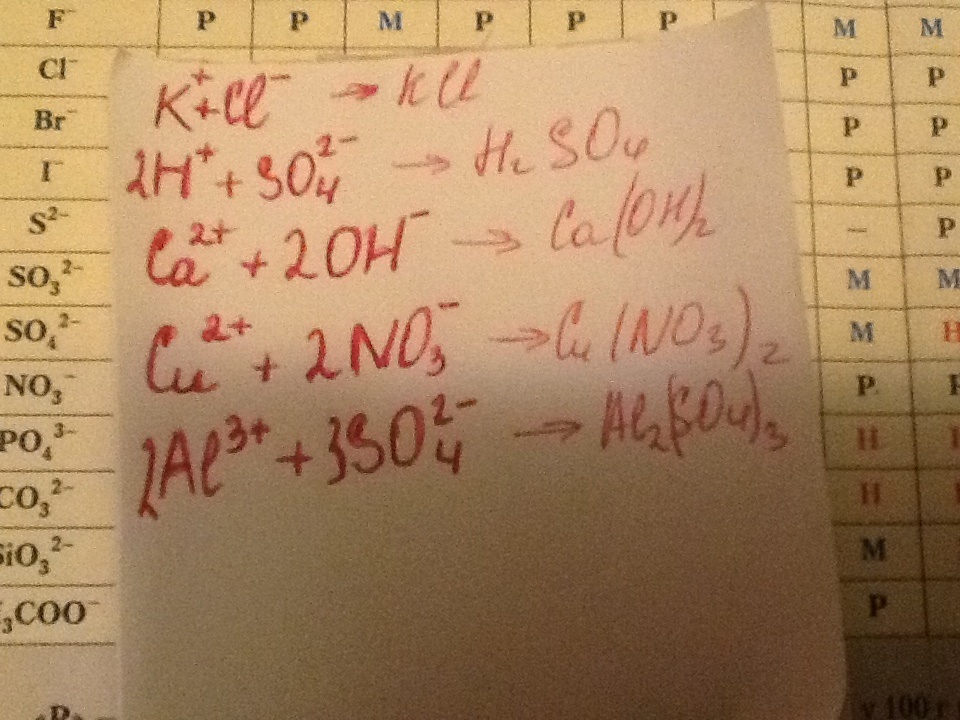 F⁻ P P М P P P М М
Cl⁻ P P
Br⁻ P P
I⁻ P P
S²⁻ – P
SO₃²⁻ М М
SO₄²⁻ М Н
NO₃⁻ P P
PO₄³⁻ Н
CO₃²⁻ Н
SiO₃²⁻ М
₃COO⁻ P
K⁺ + Cl⁻ → KCl
2H⁺ + SO₄²⁻ → H₂SO₄
Ca²⁺ + 2OH⁻ → Ca(OH)₂
Cu²⁺ + 2NO₃⁻ → Cu(NO₃)₂
2Al³⁺ + 3SO₄²⁻ → Al₂(SO₄)₃
у 100 г